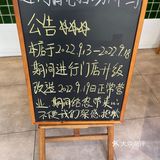 公告☆☆☆
本店于2022.9.13—2022.9.18
期间进行门店升级
改造 2022.9.19日正常营
业 期间给您带来的
不便我们深感抱歉